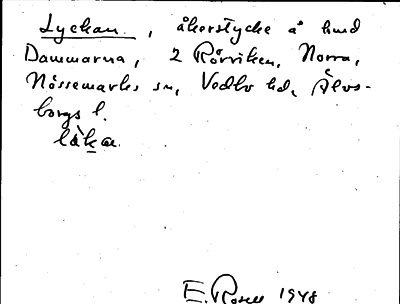 Lyckan. , åkerstycke å hmd
Dammarna, 2 Rörviken, Norra,
Nössemarks sn, Vedbo hd, Älvs-
borgs l.
E. Rosell 1948